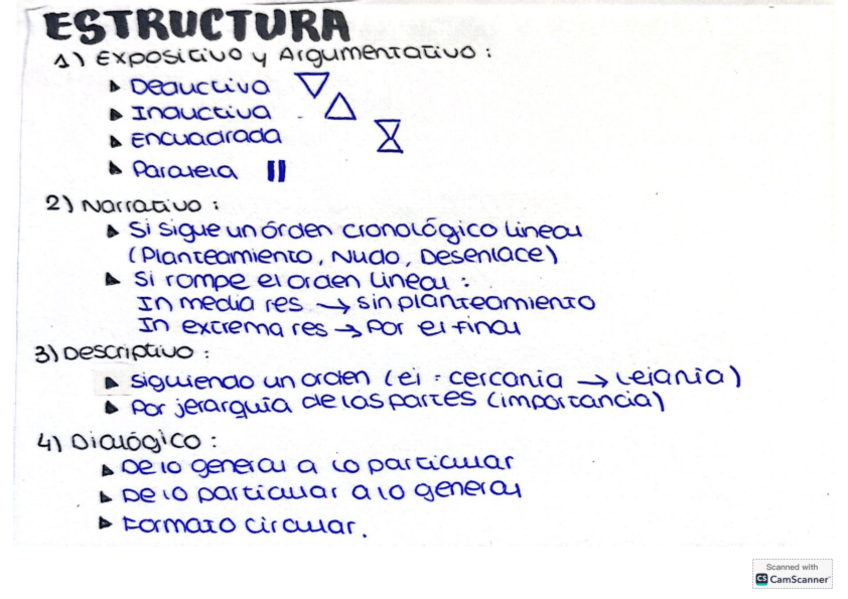 ESTRUCTURA
1) Expositivo y Argumentativo :
Deductiva
Inductiva
Encuadrada
Paralela
2) Narrativo :
Si sigue un órden cronológico lineal
(Planteamiento, Nudo, Desenlace)
Si rompe el orden lineal :
In media res → sin planteamiento
In extrema res → Por el final
3) Descriptivo :
Siguiendo un orden (ej : cercanía → lejanía)
Por jerarquía de las partes (importancia)
4) Dialógico :
De lo general a lo particular
De lo particular a lo general
Formato circular.
Scanned with
CS CamScanner